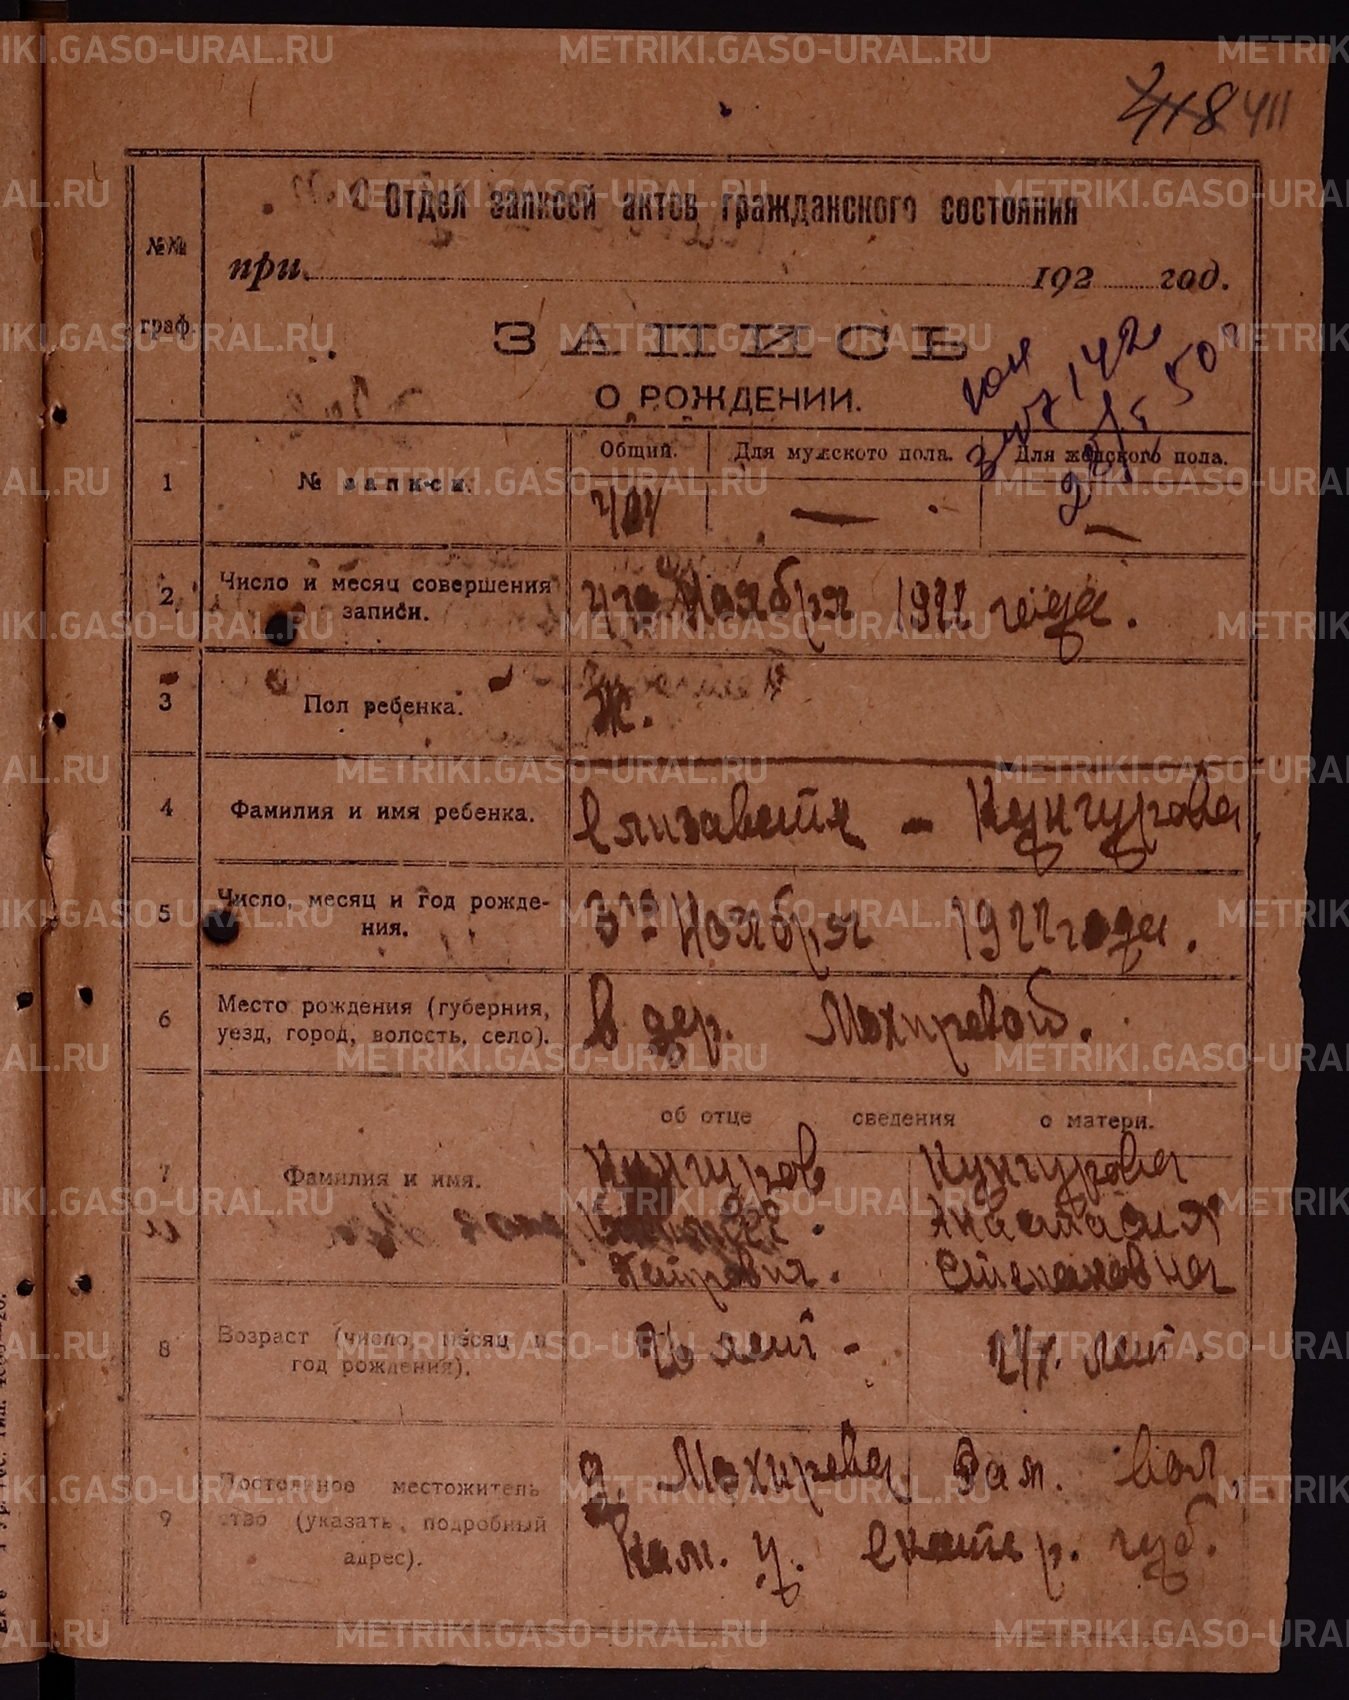 418 411
Отдел записей актов гражданского состояния
№№
при 192 год.
граф.
ЗАПИСЬ
О РОЖДЕНИИ.
142
Общий. Для мужского пола. Для женского пола.
1 № записи. 404 — —
2 Число и месяц совершения
записи.
4го Ноября 1922 года.
3 Пол ребенка. Ж.
4 Фамилия и имя ребенка. Елизавета - Кунгурова
5 Число, месяц и год рожде-
ния.
3го Ноября 1922 года.
6 Место рождения (губерния,
уезд, город, волость, село).
в дер. Мохиревой.
об отце сведения о матери.
7 Фамилия и имя.
Кунгуров Кунгурова
Анастасия
Петрович. Степановна
8 Возраст (число, месяц и
год рождения).
26 лет - лет.
9 Постоянное местожитель
ство (указать подробный
адрес).
д. Мохирева вол.
Кам. у. Екатер. губ.
METRIKI.GASO-URAL.RU